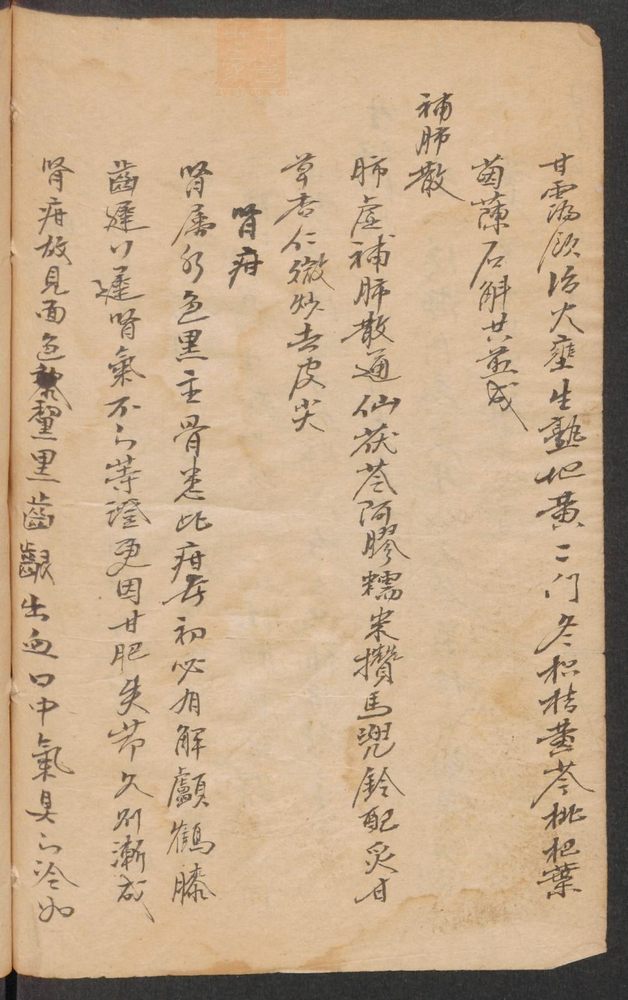 甘露飲治火壅生熟地黃二门冬枳桔黃芩枇杷葉
茵蔯石斛共煎成
補肺散
肺虛補肺散通仙茯苓阿膠糯米攢馬兜鈴配炙甘
草杏仁微炒去皮尖
腎疳
腎属水色黑主骨患此疳者初必有解顱鶴膝
齒遲行遲腎氣不足等證更因甘肥失节久则漸成
腎疳故見面色黧黑齒齦出血口中氣臭足冷如